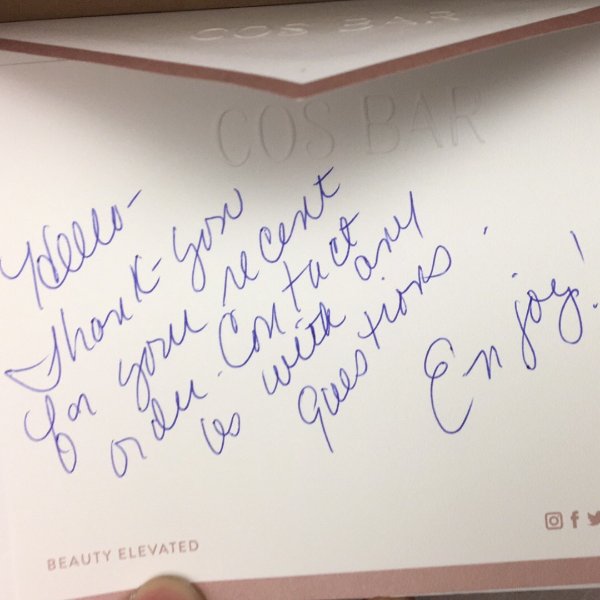 COS BAR
COS BAR
Hello-
Thank-you
for your recent
order. Contact
us with any
questions.
Enjoy!
BEAUTY ELEVATED